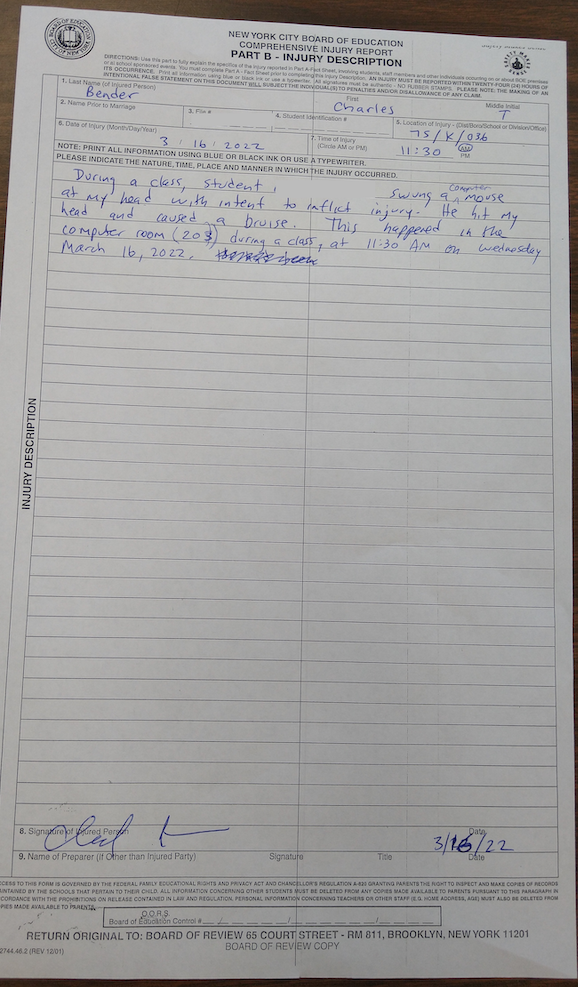 BOARD OF EDUCATION
CITY OF NEW YORK
NEW YORK CITY BOARD OF EDUCATION
COMPREHENSIVE INJURY REPORT
PART B - INJURY DESCRIPTION
DIRECTIONS: Use this part to fully explain the specifics of the injury reported in Part A-Fact Sheet, involving students, staff members and other individuals occurring on or about BOE premises
or at school sponsored events. You must complete Part A - Fact Sheet prior to completing this Injury Description. AN INJURY MUST BE REPORTED WITHIN TWENTY-FOUR (24) HOURS OF
ITS OCCURRENCE. Print all information using blue or black ink or use a typewriter. (All signatures must be authentic - NO RUBBER STAMPS). PLEASE NOTE: THE MAKING OF AN
INTENTIONAL FALSE STATEMENT ON THIS DOCUMENT WILL SUBJECT THE INDIVIDUAL(S) TO PENALTIES AND/OR DISALLOWANCE OF ANY CLAIM.
1. Last Name (of Injured Person) First Middle Initial
Bender Charles T
2. Name Prior to Marriage 3. File # 4. Student Identification # 5. Location of Injury - (Dist/Boro/School or Division/Office)
75/K/036
6. Date of Injury (Month/Day/Year) 7. Time of Injury
(Circle AM or PM)
3 / 16 / 2022 11:30 AM
PM
NOTE: PRINT ALL INFORMATION USING BLUE OR BLACK INK OR USE A TYPEWRITER.
PLEASE INDICATE THE NATURE, TIME, PLACE AND MANNER IN WHICH THE INJURY OCCURRED.
During a class, student, swung a computer mouse
at my head with intent to inflict injury. He hit my
head and caused a bruise. This happened in the
computer room (203) during a class, at 11:30 AM on Wednesday
March 16, 2022.
INJURY DESCRIPTION
8. Signature of Injured Person Date
3/16/22
9. Name of Preparer (If Other than Injured Party) Signature Title Date
ACCESS TO THIS FORM IS GOVERNED BY THE FEDERAL FAMILY EDUCATIONAL RIGHTS AND PRIVACY ACT AND CHANCELLOR'S REGULATION A-820 GRANTING PARENTS THE RIGHT TO INSPECT AND MAKE COPIES OF RECORDS
MAINTAINED BY THE SCHOOLS THAT PERTAIN TO THEIR CHILD. ALL INFORMATION CONCERNING OTHER STUDENTS MUST BE DELETED FROM ANY COPIES MADE AVAILABLE TO PARENTS PURSUANT TO THIS PARAGRAPH IN
ACCORDANCE WITH THE PROHIBITIONS ON RELEASE CONTAINED IN LAW AND REGULATION. PERSONAL INFORMATION CONCERNING TEACHERS OR OTHER STAFF (E.G. HOME ADDRESS, AGE) MUST ALSO BE DELETED FROM
COPIES MADE AVAILABLE TO PARENTS.
O.O.R.S.
Board of Education Control #
RETURN ORIGINAL TO: BOARD OF REVIEW 65 COURT STREET - RM 811, BROOKLYN, NEW YORK 11201
BOARD OF REVIEW COPY
2744.46.2 (REV 12/01)